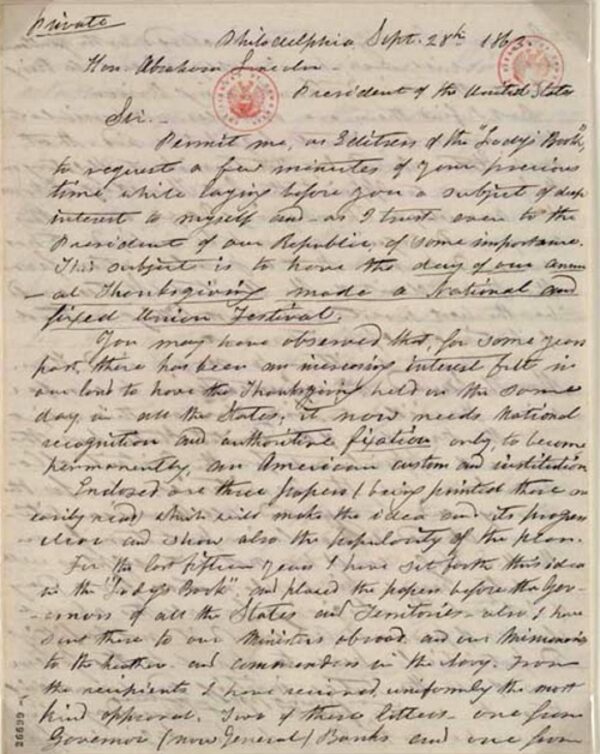 Private
Philadelphia Sept. 28th 1863
Hon. Abraham Lincoln
President of the United States
Sir.—
Permit me, as Editress of the "Lady's Book",
to request a few minutes of your precious
time, while laying before you a subject of deep
interest to myself and — as I trust — even to the
President of our Republic, of some importance.
This subject is to have the day of our annu
-al Thanksgiving made a National and
fixed Union Festival.
You may have observed that, for some years
past, there has been an increasing interest felt in
our land to have the Thanksgiving held on the same
day, in all the States; it now needs National
recognition and authoritive fixation, only, to become
permanently, an American custom and institution
Enclosed are three papers (being printed these are
easily read) which will make the idea and its progress
clear and show also the popularity of the plan.
For the last fifteen years I have set forth this idea
in the "Lady's Book", and placed the papers before the Gov-
-ernors of all the States and Territories — also I have
sent these to our Ministers abroad, and our Missionaries
to the heathen — and commanders in the Navy. From
the recipients I have received, uniformly the most
kind approval. Two of these letters, one from
Governor (now General) Banks and one from
26699